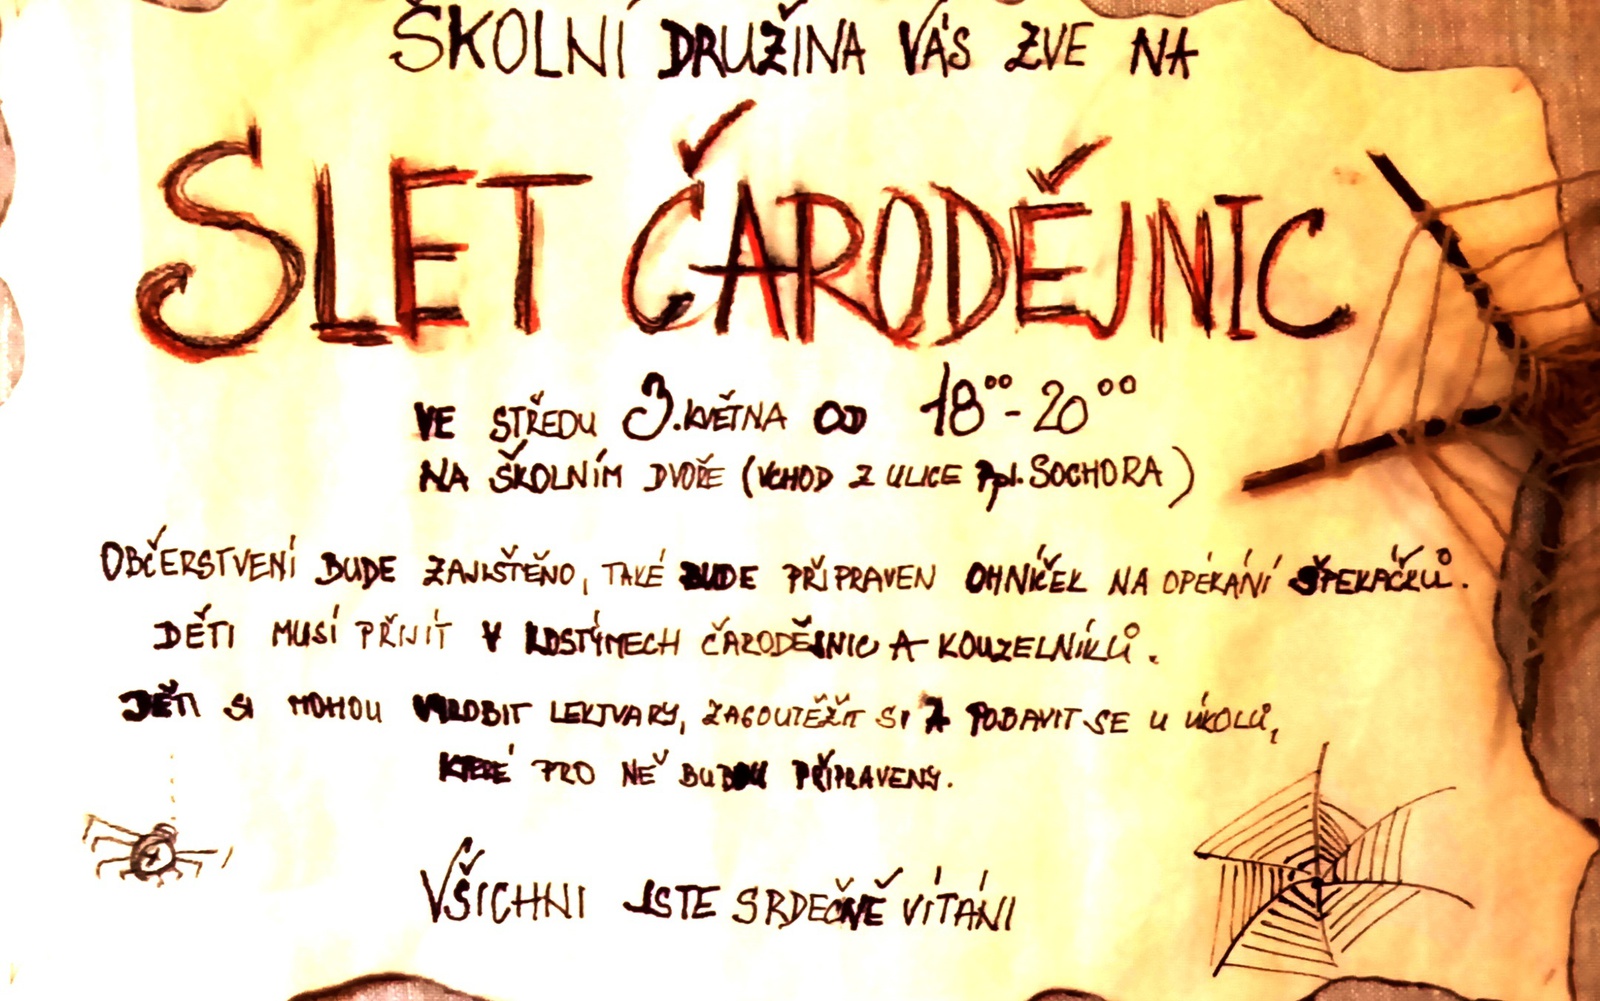 ŠKOLNÍ DRUŽINA VÁS ZVE NA
SLET ČARODĚJNIC
VE STŘEDU 3. KVĚTNA OD 18⁰⁰ - 20⁰⁰
NA ŠKOLNÍM DVOŘE (VCHOD Z ULICE Ppl. SOCHORA)
OBČERSTVENÍ BUDE ZAJIŠTĚNO, TAKÉ BUDE PŘIPRAVEN OHNÍČEK NA OPÉKÁNÍ ŠPEKÁČKŮ.
DĚTI MUSÍ PŘIJÍT V KOSTÝMECH ČARODĚJNIC A KOUZELNÍKŮ.
DĚTI SI MOHOU VYROBIT LEKTVARY, ZASOUTĚŽIT SI A POBAVIT SE U ÚKOLŮ,
KTERÉ PRO NĚ BUDOU PŘIPRAVENY.
VŠICHNI JSTE SRDEČNĚ VÍTÁNI